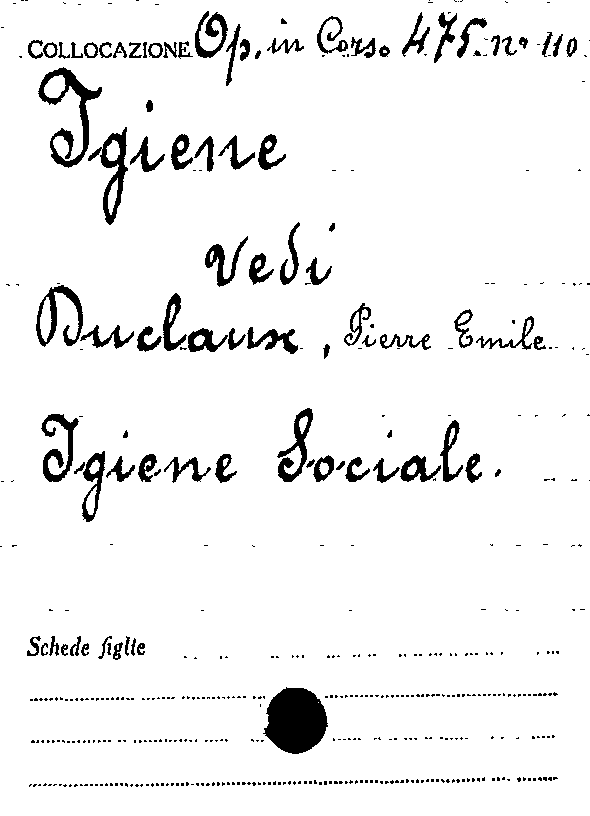 COLLOCAZIONE Op. in Corso 475. nº 110
Igiene
Vedi
Duclaux, Pierre Emile
Igiene Sociale.
Schede figlie